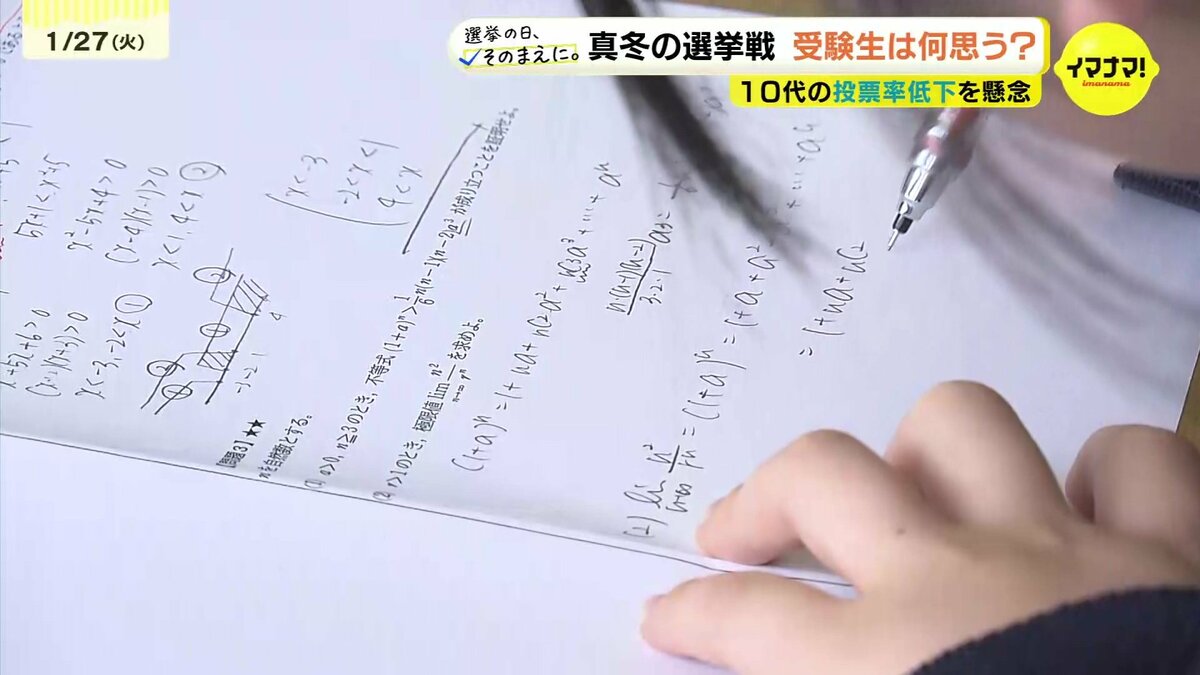 1/27(火)
選挙の日、
そのまえに。
真冬の選挙戦 受験生は何思う?
10代の投票率低下を懸念
イマナマ!
imanama
5x+1<x+5
x²-5x+4>0
(x-4)(x-1)>0
x<1, 4<x ②
x+5x+6>0
(x+2)(x+3)>0
x<-3, -2<x ①
② ① ② ①
-3 -2 1 4
x<-3
-2<x<1
4<x
【問題3】★★
nを自然数とする。
(1) a>0, n≧3のとき, 不等式(1+a)ⁿ>1/6 n(n-1)(n-2)a³が成り立つことを証明せよ。
(2) r>1のとき, 極限値 lim n→∞ n²/rⁿ を求めよ。
(1+a)ⁿ=1+na+nC2a²+nC3a³+…+aⁿ
n(n-1)(n-2)/3·2·1 a³=
(1) lim n→∞ n²/rⁿ = (1+a)ⁿ = 1+a+a²
=1+na+nC2